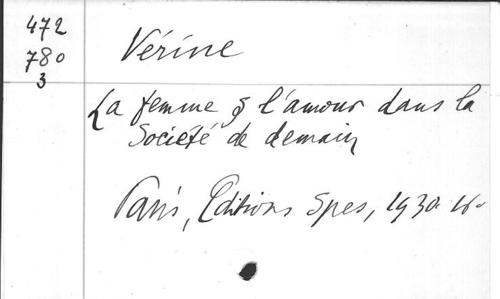 472
780
3
Vérine
La femme & l'amour dans la
Société de demain
Paris, Editions Spes, 1930. 16°